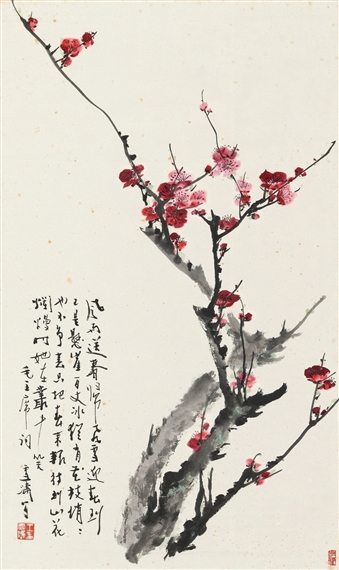 风雨送春归飞雪迎春到
已是悬崖百丈冰犹有花枝俏俏
也不争春只把春来报待到山花
烂熳时她在丛中笑
毛主席词 雪涛写